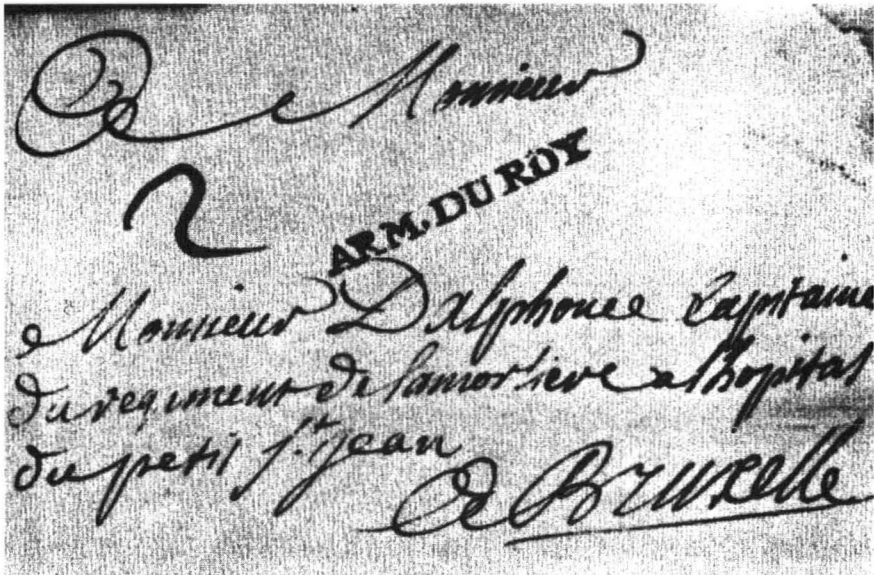 A Monsieur
2
ARM. DU ROY
Monsieur Dalphonce Capitaine
du regiment de lamorliere a lhopital
du petit st jean
A Bruxelle